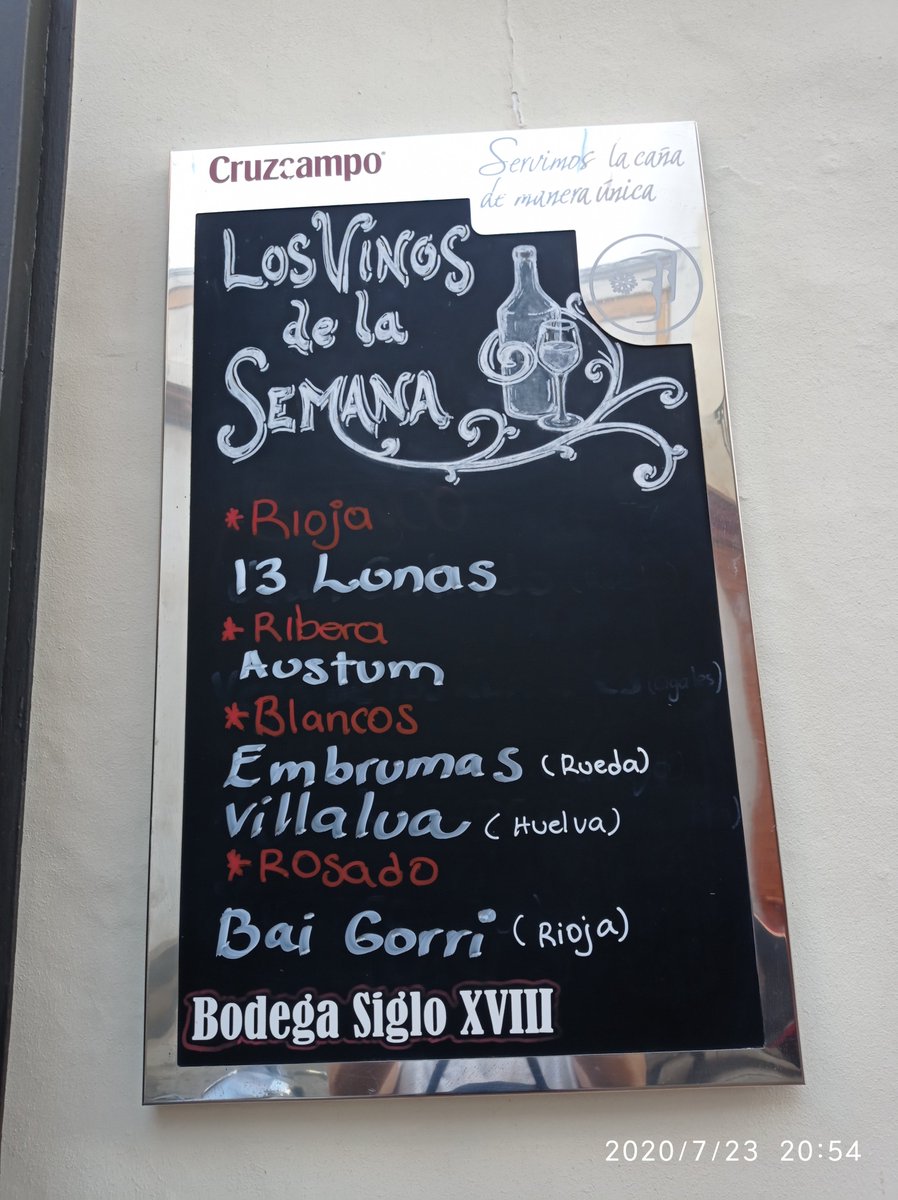 Cruzcampo
Servimos la caña
de manera única
Los Vinos
de la
Semana
*Rioja
13 Lunas
*Ribera
Austum
*Blancos
Embrumas (Rueda)
Villalua (Huelva)
*Rosado
Bai Gorri (Rioja)
Bodega Siglo XVIII
2020/7/23 20:54